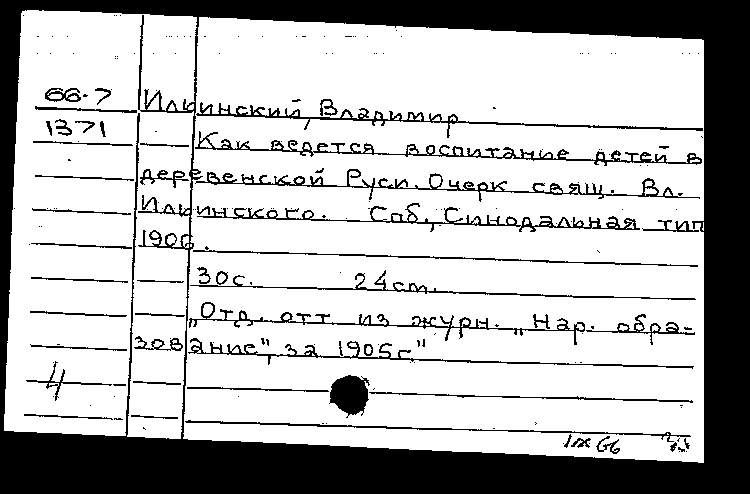 66-7 Ильинский, Владимир
1371 Как ведется воспитание детей в
деревенской Руси. Очерк свящ. Вл.
Ильинского. Спб., Синодальная тип
1906.
30с. 24см.
„Отд. отт из журн. „Нар. обра-
зование", за 1905г."
4
IX 66